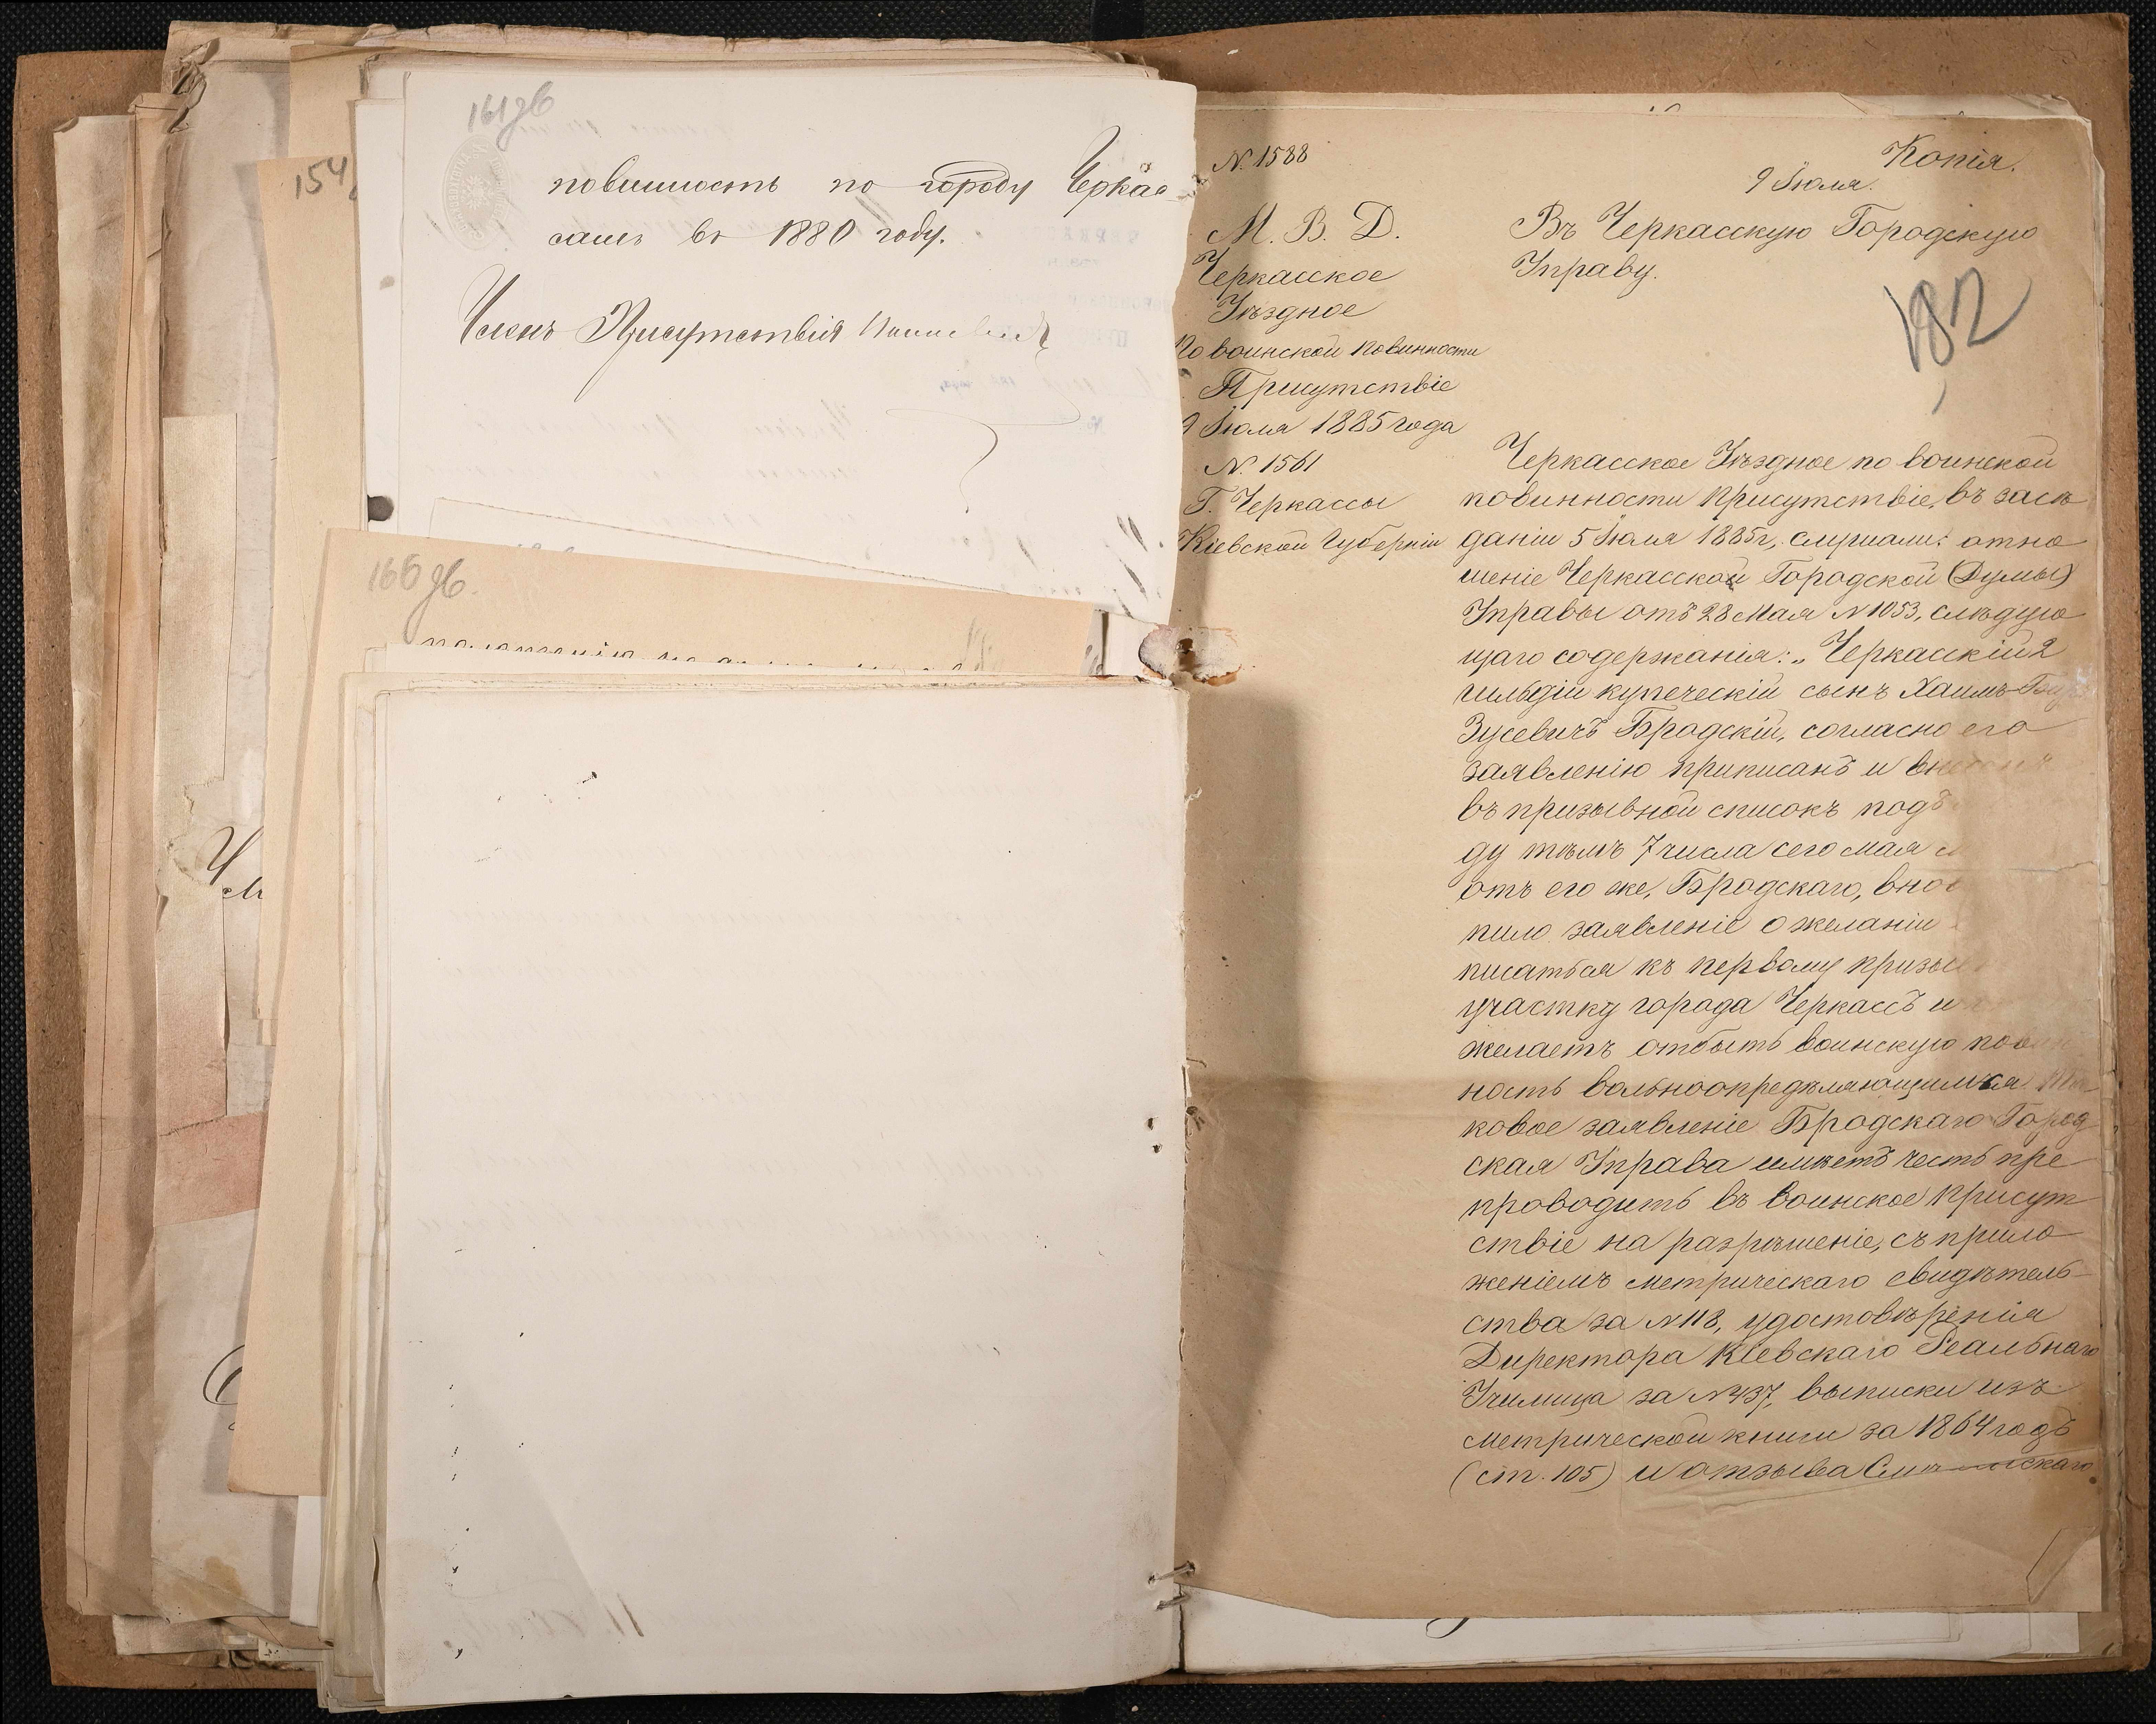 161зв
повинность по городу Черкас-
самъ въ 1880 году.
Членъ Присутствія
154
166зв.
положенію
Ч
№ 1588
Копія.
9 Іюля.
М. В. Д.
Черкасское
Уѣздное
По воинской повинности
Присутствіе
9 Іюля 1885 года
№ 1561
Г. Черкассы
Кіевской Губерніи
Въ Черкасскую Городскую
Управу.
182
Черкасское Уѣздное по воинской
повинности Присутствіе, въ засѣ
даніи 5 Іюля 1885 г, слушали: отно
шеніе Черкасской Городской (Думы)
Управы отъ 28 Мая № 1053, слѣдую
щаго содержанія: „Черкасскій 2
гильдіи купеческій сынъ Хаимъ-
Зусевичъ Бродскій, согласно его
заявленію приписанъ и
въ призывной списокъ подъ
ду тѣмъ 7 числа сего мая
отъ его же, Бродскаго, внов
пило заявленіе о желаніи
писаться къ первому призыв
участку города Черкассъ и
желаетъ отбыть воинскую повин
ность вольноопредѣляющимся. Та-
ковое заявленіе Бродскаго Город
ская Управа имѣетъ честь пре
проводить въ воинское Присут
ствіе на разрѣшеніе, съ прило
женіемъ метрическаго свидѣтель-
ства за № 118, удостовѣренія
Директора Кіевскаго Реальнаго
Училища за № 437, выписки изъ
метрической книги за 1864 годъ
(ст. 105) и отзыва